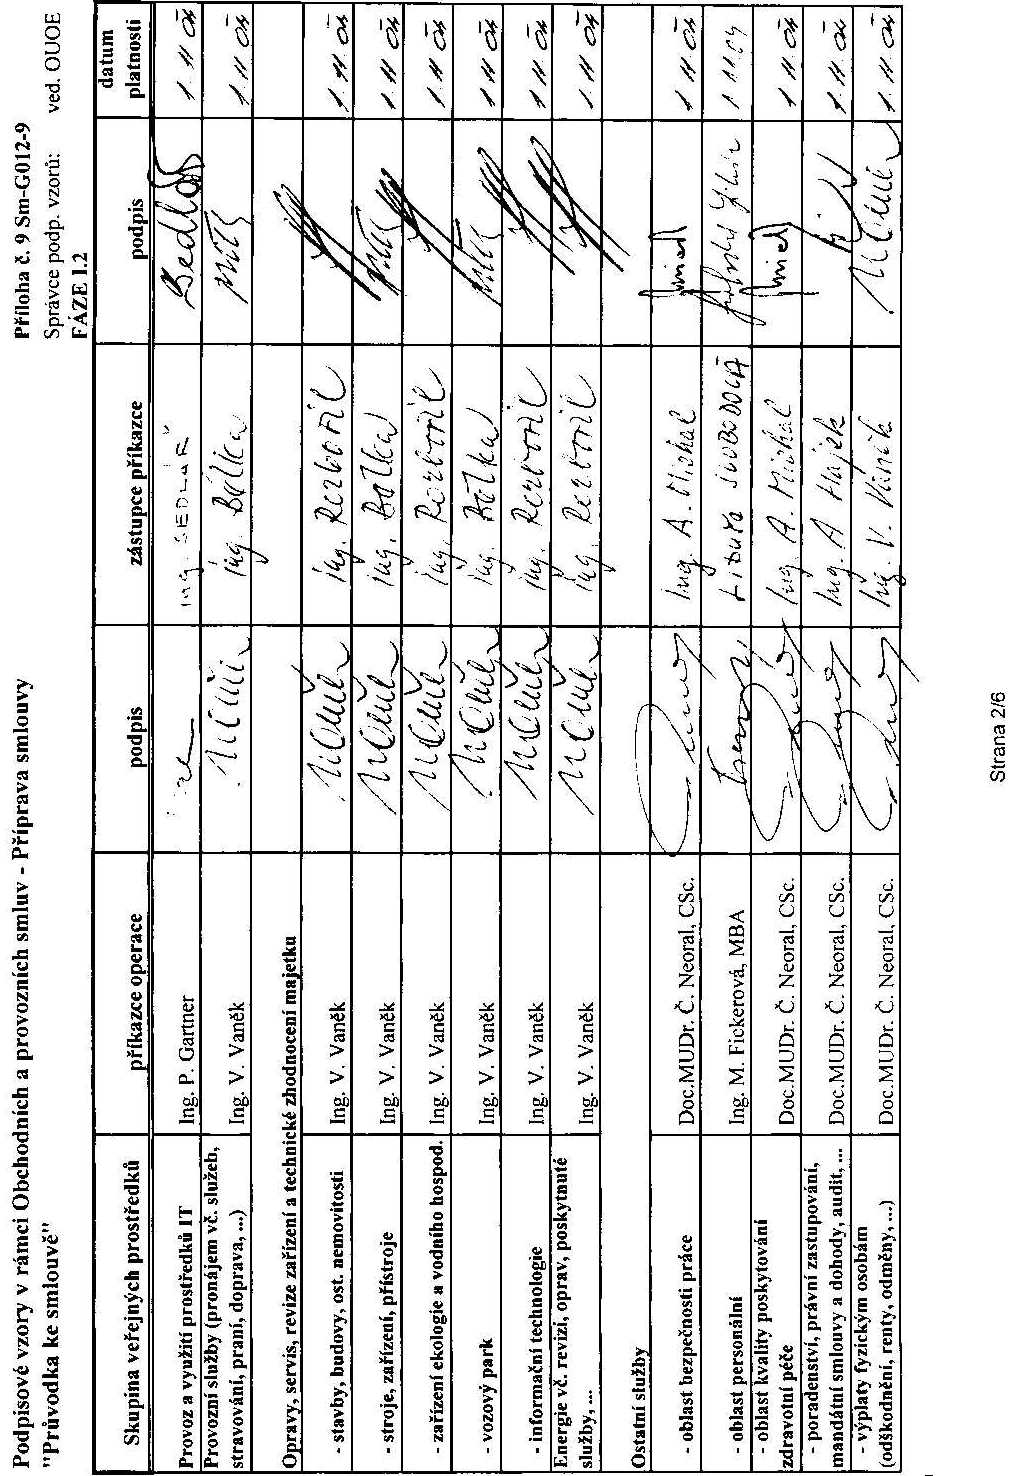 Podpisové vzory v rámci Obchodních a provozních smluv - Příprava smlouvy
"Průvodka ke smlouvě"
Příloha č. 9 Sm-G012-9
Správce podp. vzorů: ved. OUOE
FÁZE I.2
Skupina veřejných prostředků příkazce operace podpis zástupce příkazce podpis datum platnosti
Provoz a využití prostředků IT Ing. P. Gartner Ing. SEDLÁŘ Sedlář 1.11.04
Provozní služby (pronájem vč. služeb, stravování, praní, doprava, ...) Ing. V. Vaněk Ing. Baťka 1.11.04
Opravy, servis, revize zařízení a technické zhodnocení majetku
- stavby, budovy, ost. nemovitosti Ing. V. Vaněk Ing. Rezbořil 1.11.04
- stroje, zařízení, přístroje Ing. V. Vaněk Ing. Baťka 1.11.04
- zařízení ekologie a vodního hospod. Ing. V. Vaněk Ing. Rezbořil 1.11.04
- vozový park Ing. V. Vaněk Ing. Baťka 1.11.04
- informační technologie Ing. V. Vaněk Ing. Rezbořil 1.11.04
Energie vč. revizí, oprav, poskytnuté služby, ... Ing. V. Vaněk Ing. Rezbořil 1.11.04
Ostatní služby
- oblast bezpečnosti práce Doc.MUDr. Č. Neoral, CSc. Ing. A. Michal 1.11.04
- oblast personální Ing. M. Fickerová, MBA Libuše SVOBODOVÁ 1.11.04
- oblast kvality poskytování zdravotní péče Doc.MUDr. Č. Neoral, CSc. Ing. A. Michal 1.11.04
- poradenství, právní zastupování, mandátní smlouvy a dohody, audit, ... Doc.MUDr. Č. Neoral, CSc. Ing. A. Hájek 1.11.04
- výplaty fyzickým osobám (odškodnění, renty, odměny, ...) Doc.MUDr. Č. Neoral, CSc. Ing. V. Vaněk 1.11.04
Strana 2/6